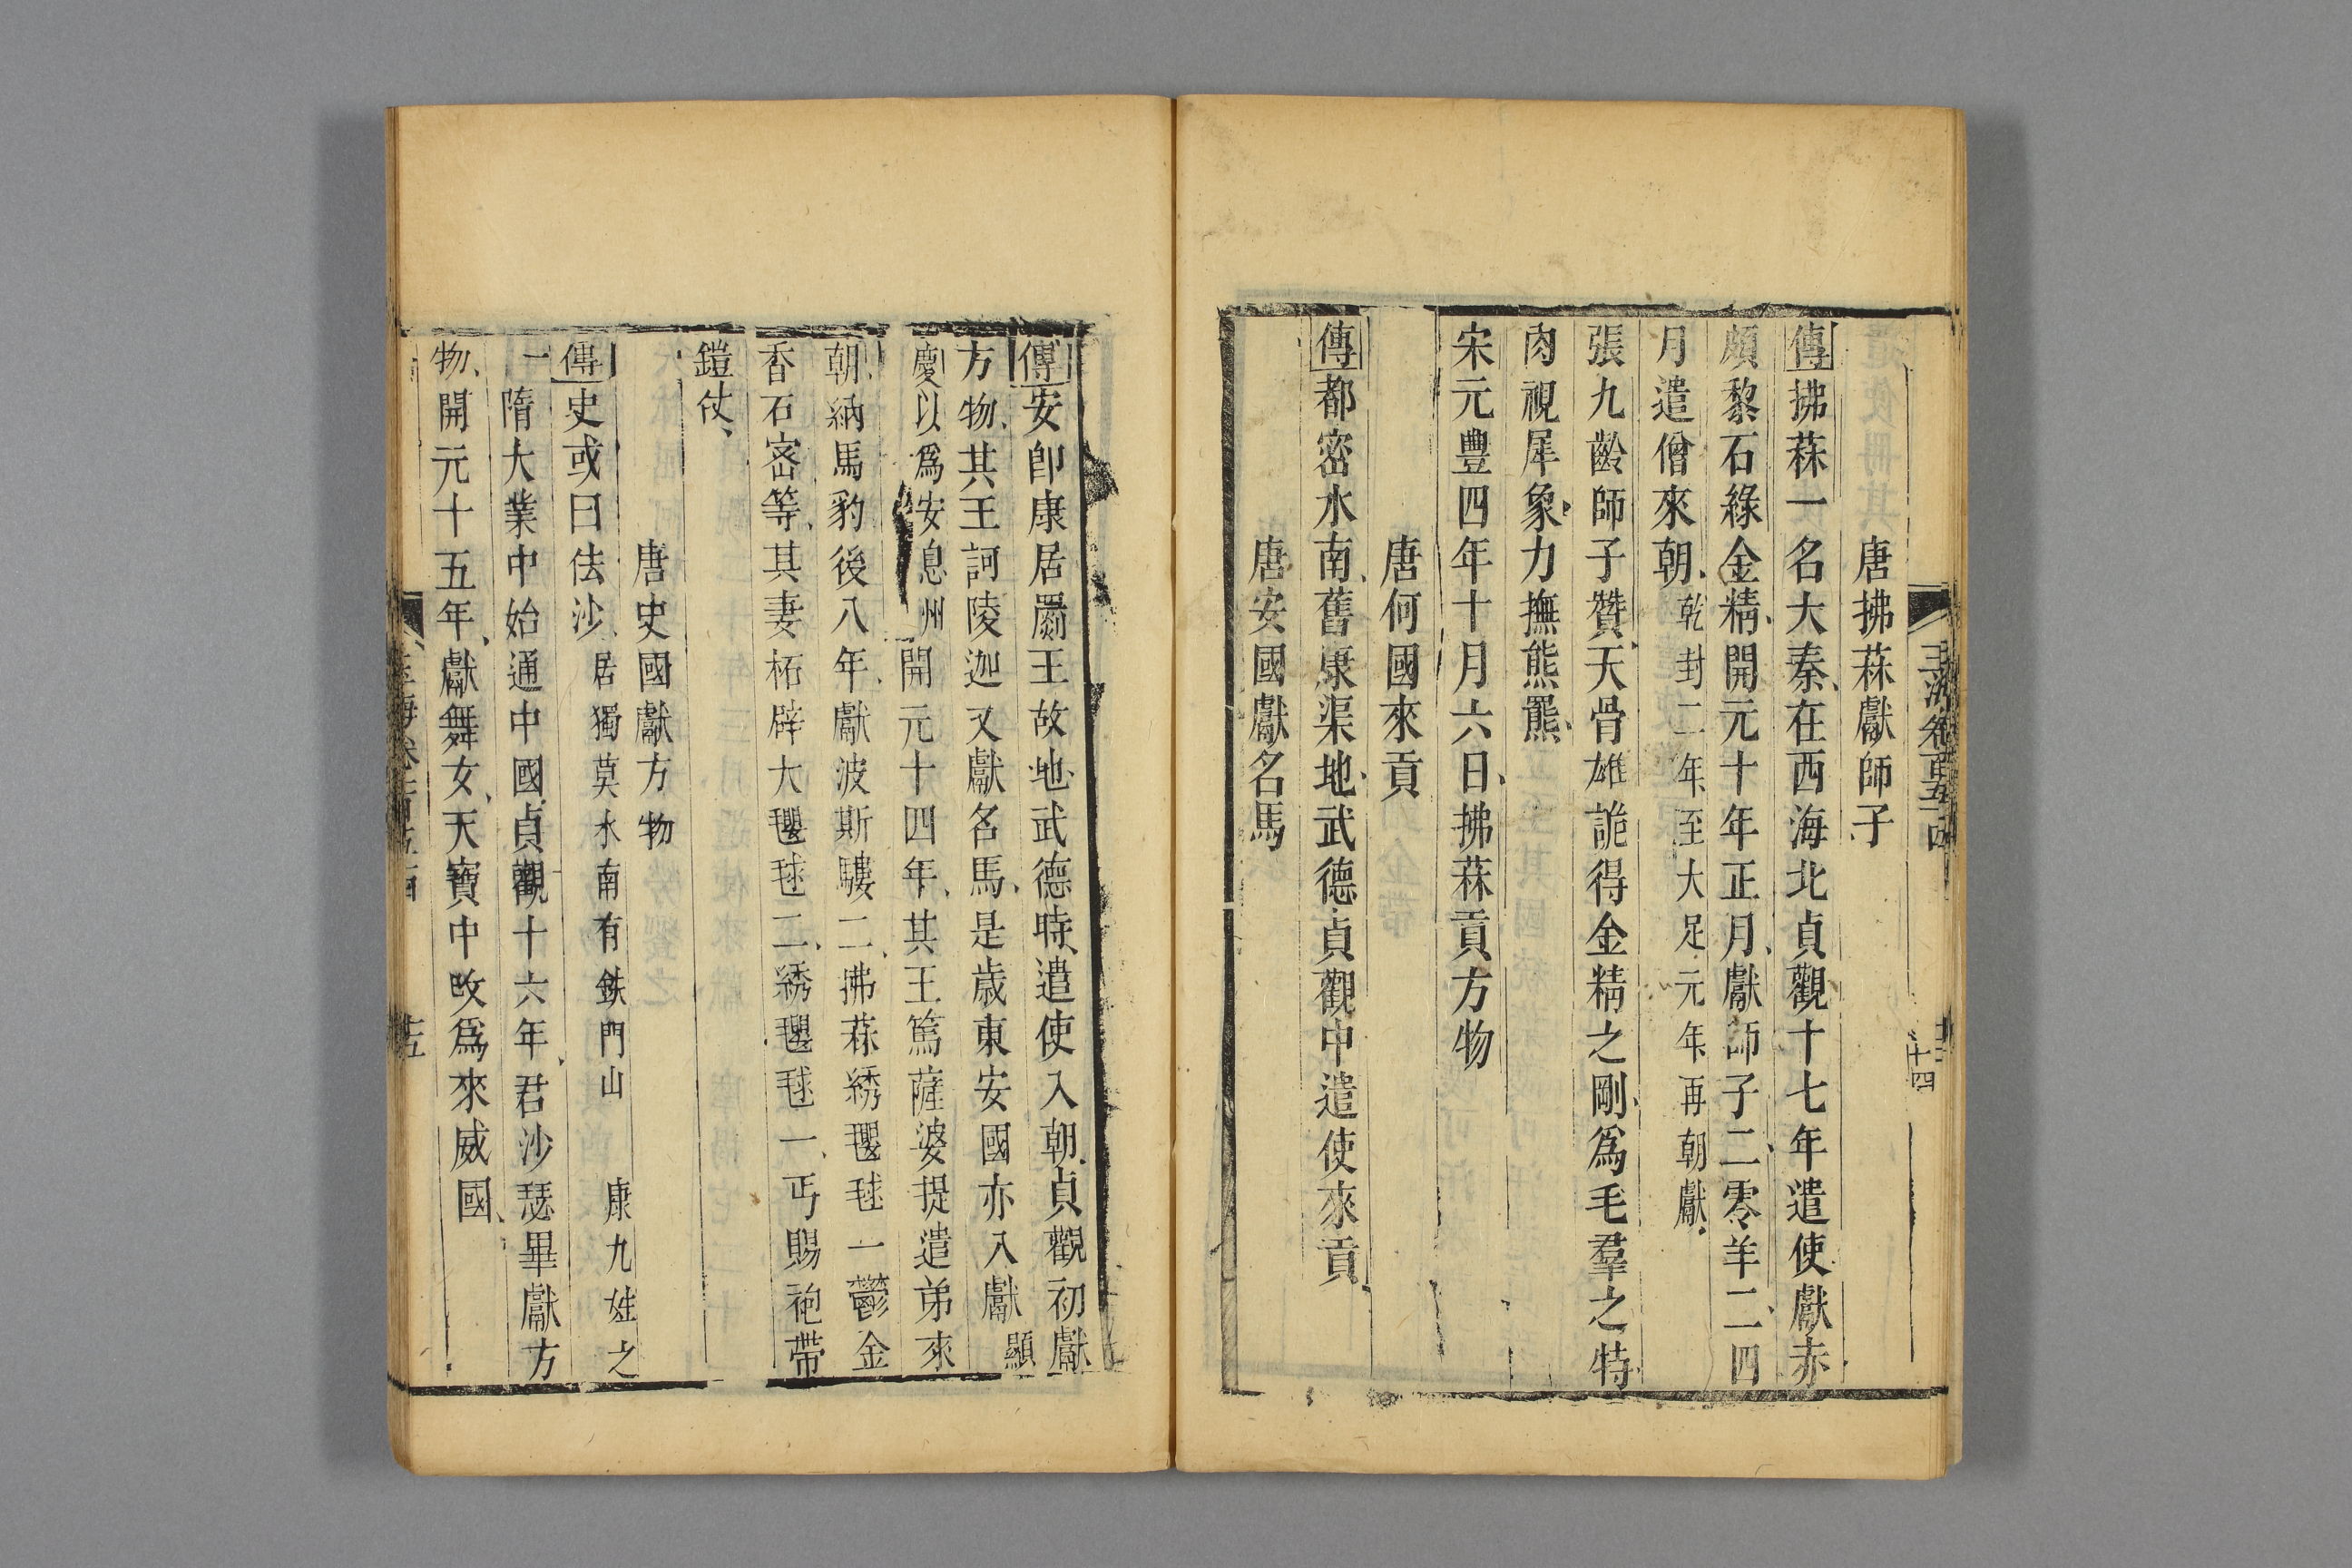 玉海卷百五十四
十四
唐拂菻獻師子
傳拂菻一名大秦、在西海北貞觀十七年遣使獻赤
頗黎石綠金精、開元十年正月、獻師子二、零羊二、四
月遣僧來朝、乾封二年、至大足元年、再朝獻、
張九齡師子贊、天骨雄詭得金精之剛、爲毛羣之特、
肉視犀象、力撫熊羆、
宋元豐四年十月六日、拂菻貢方物
唐何國來貢
傳都密水南、舊康渠地、武德貞觀中遣使來貢、
唐安國獻名馬
傳安卽康居罽王故地、武德時、遣使入朝、貞觀初獻
方物、其王訶陵迦又獻名馬、是歲東安國亦入獻顯
慶以爲安息州開元十四年、其王篤薩婆提遣弟來
朝、納馬豹後八年、獻波斯驄二、拂菻綉氍毬一鬱金
香石宻等、其妻柘辟大氍毬二、綉氍毬一、丐賜袍帶
鎧仗、
唐史國獻方物
傳史或曰佉沙、居獨莫水南有鉄門山 康九姓之
一隋大業中始通中國貞觀十六年、君沙瑟畢獻方
物、開元十五年、獻舞女、天寶中改爲來威國、